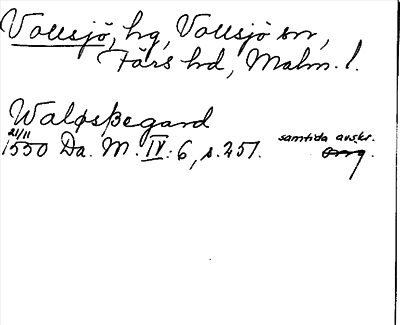 Vollsjö, hg, Vollsjö sn,
Färs hd, Malm. l.
Waløsþegard
21/11
1550 Da. M. IV: 6, s. 251. samtida avskr.
orig.